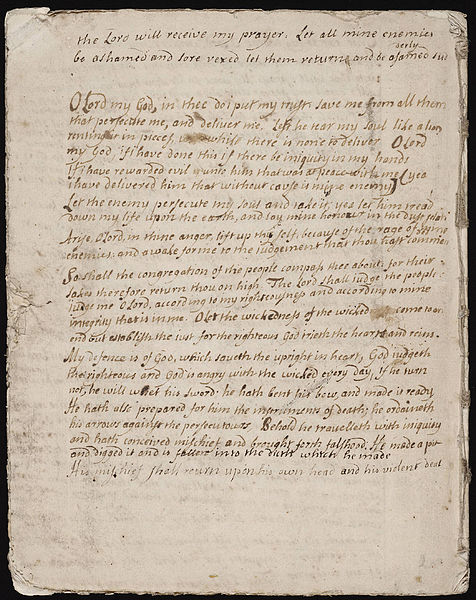 the Lord will receive my prayer. Let all mine enemies
be ashamed and sore vexed let them return and be asamed sud
denly
O Lord my God, in thee do i put my trust save me from all them
that persecute me, and deliver me, lest he tear my soul like a lion
renting it in pieces, whilst there is none to deliver O Lord
my God, if i have done this if there be iniquity in my hands
If i have rewarded evil unto him that was at peace with me (yea
i have delivered him that without cause is mine enemy)
Let the enemy persecute my soul and take it, yea let him tread
down my life upon the earth, and lay mine honour in the dust selah
Arise O lord, in thine anger, lift up thy self, because of the rage of mine
enemies: and awake for me to the judgement that thou hast commen
So shall the congregation of the people compass thee about: for their
sakes therefore return thou on high. The Lord shall judge the people:
Judge me O lord, according to my righteousness and according to mine
integrity that is in me. O let the wickedness of the wicked come to an
end but establish the just for the righteous God trieth the hearts and reins.
My defence is of God, which saveth the upright in heart, God judgeth
the righteous and God is angry with the wicked every day, if he turn
not, he will whet his sword: he hath bent his bow, and made it ready
He hath also prepared for him the instruments of death; he ordaineth
his arrows against the persecutours. Behold he travelleth with iniquity
and hath conceived mischief and brought forth falshood. He made a pit
and digged it and is fallen into the ditch which he made
His mischief shall return upon his own head and his violent deal